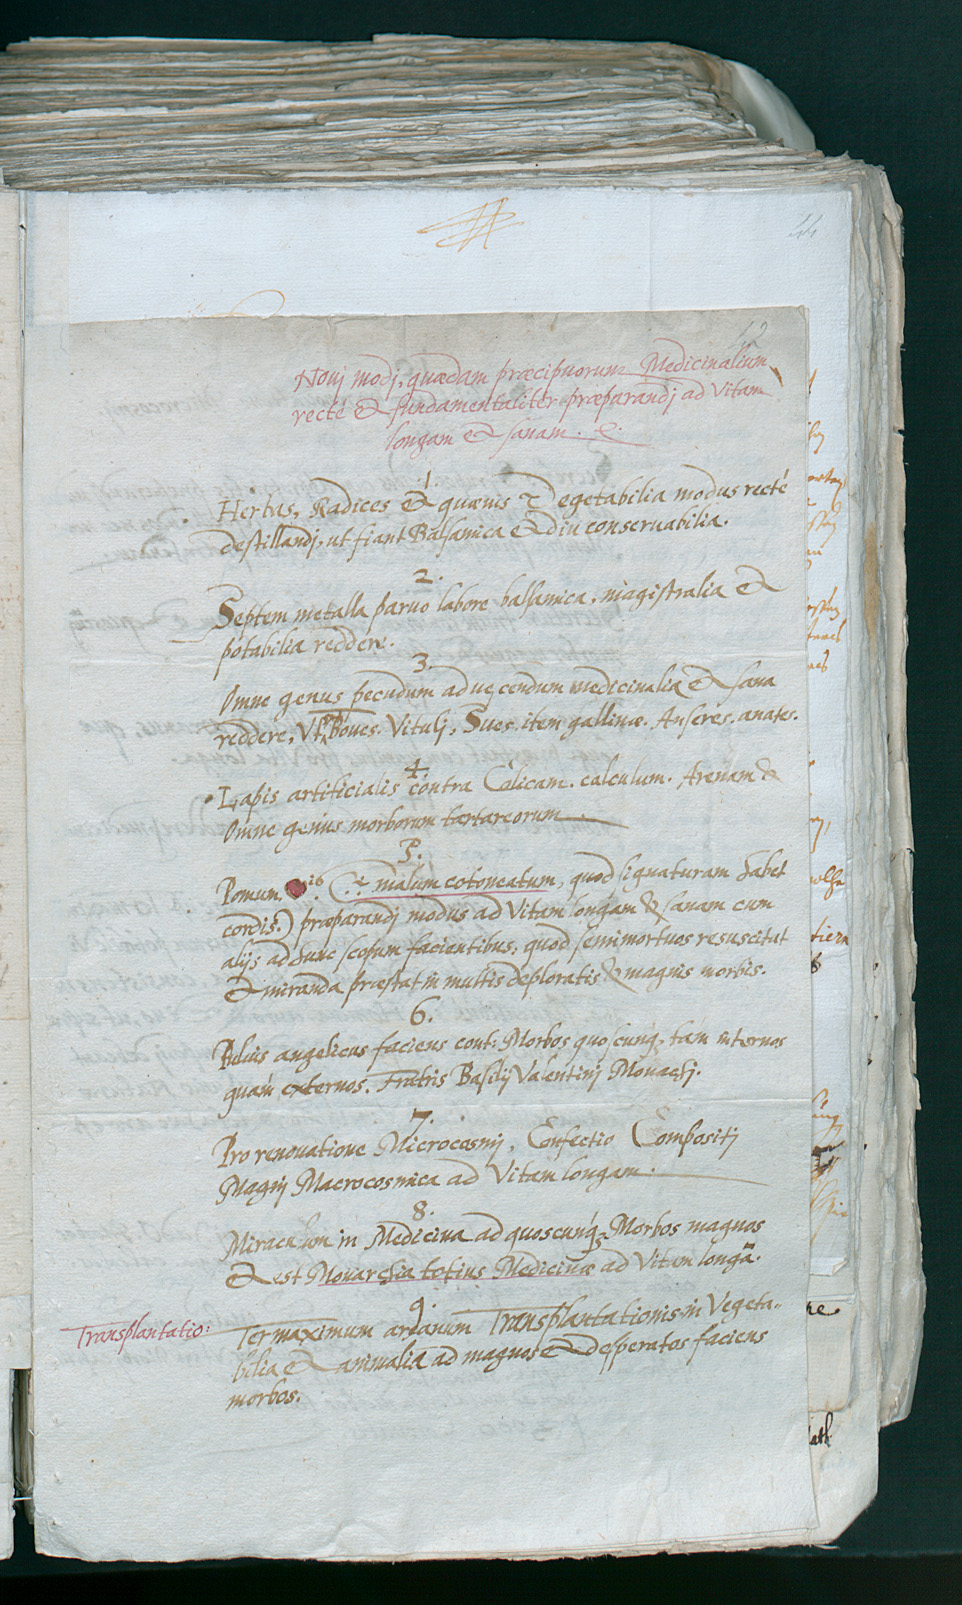 42
Novj modj, quædam præcipuorum Medicinalium
recte & fundamentaliter præparandj ad Vitam
longam & sanam.
1.
Herbas, Radices & quævis Vegetabilia modus recté
destillandj, ut fiant Balsamica & diu conservabilia.
2.
Septem metalla parvo labore balsamica, magistralia &
potabilia reddere.
3.
Omne genus pecudum ad vescendum medicinalia & sana
reddere, Vt Boves. Vitulj, Sues. item gallinæ. Anseres. anates.
4.
Lapis artificialis contra Cólicam. calculum. Arenam &
Omne genus morborum tartareorum.
5.
Pomum (: malum cotoneatum, quod signaturam habet
cordis:) præparandj modus ad Vitam longam & sanam cum
alijs ad hunc scopum facientibus: quod semimortuos resuscitat
& miranda præstat in multis deploratis & magnis morbis.
6.
Pilius angelicus faciens cont: Morbos quoscunq, tám internos
quám externos. Fratris Basilij Valentinj Monachj.
7.
Pro renovatione Microcosmj, Confectio Compositj
Magnj Macrocosmica ad Vitam longam.
8.
Miraculum in Medicina ad quoscunq Morbos magnos
& est Monarchia totius Medicinæ ad Vitam longā.
9.
Transplantatio:
Ter maximum arcanum Transplantationis in Vegeta-
bilia & animalia ad magnos & desperatos faciens
morbos.